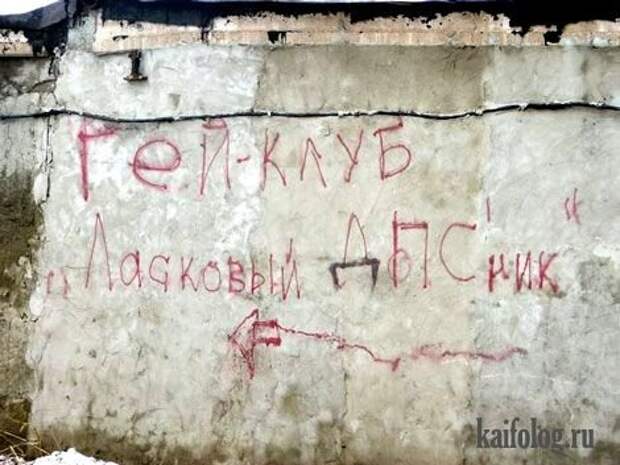 Гей-клуб
„Ласковый ДПС'ник“
kaifolog.ru